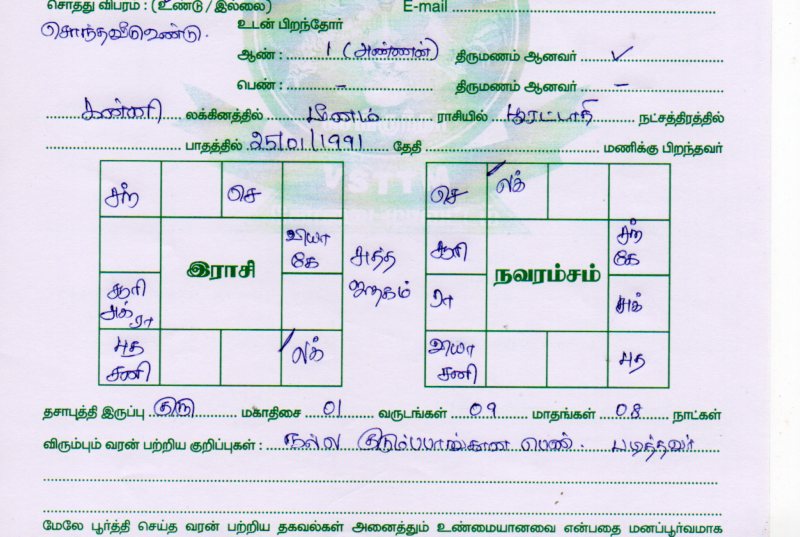 சொத்து விபரம் : (உண்டு / இல்லை) E-mail
சொந்தவீடு உண்டு. உடன் பிறந்தோர்
ஆண் : 1 (அண்ணன்) திருமணம் ஆனவர் ✓
பெண் : - திருமணம் ஆனவர் -
கன்னி லக்கினத்தில் மீனம் ராசியில் பூரட்டாதி நட்சத்திரத்தில்
பாதத்தில் 25/01/1991 தேதி மணிக்கு பிறந்தவர்
VSTTM
சந் செ
வியா
கே
இராசி
சூரி
சுக்
ரா
புத
சனி
லக்
சுத்த
ஜாதகம்
செ லக்
சூரி
சந்
கே
நவரம்சம்
ரா சுக்
வியா
சனி
புத
தசாபுத்தி இருப்பு குரு மகாதிசை 01 வருடங்கள் 09 மாதங்கள் 08 நாட்கள்
விரும்பும் வரன் பற்றிய குறிப்புகள் : நல்ல குடும்பபாங்கான பெண். படித்தவர்
மேலே பூர்த்தி செய்த வரன் பற்றிய தகவல்கள் அனைத்தும் உண்மையானவை என்பதை மனப்பூர்வமாக